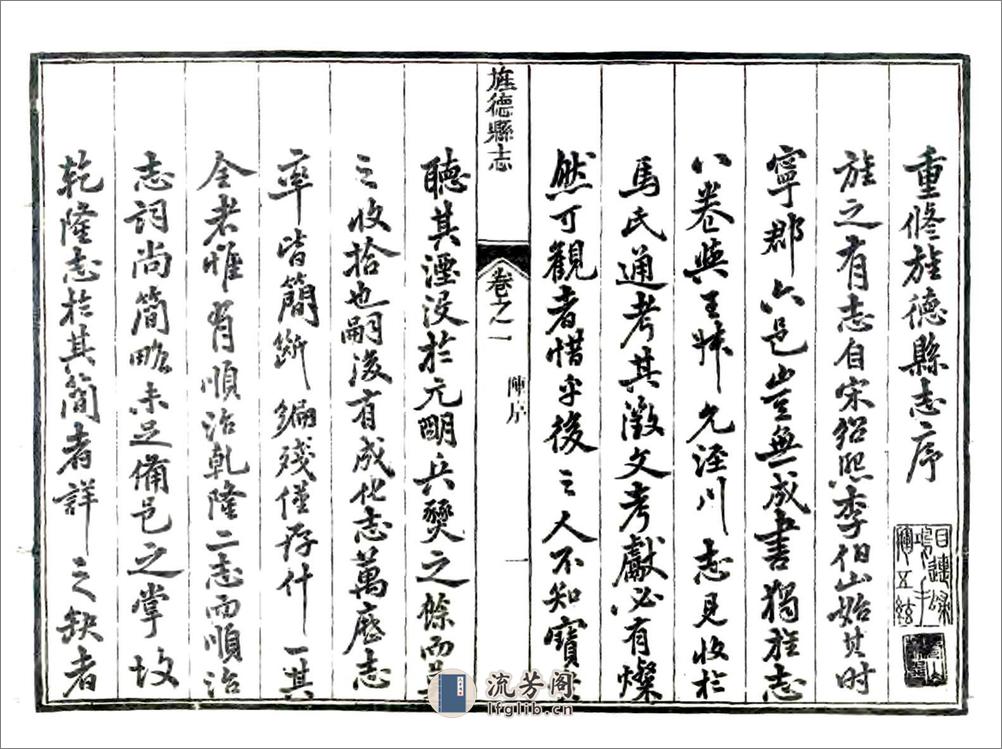 重修旌德縣志序
目送歸鴻手揮五絃
旌之有志自宋紹熙李伯山始其時
寧郡六邑豈無成書獨旌志
八卷與王栐允涇川志見收於
馬氏通考其徵文考獻必有燦
然可觀者惜乎後之人不知寶
旌德縣志
卷之一
陳序
一
聽其湮没於元明兵燹之餘而
之收拾也嗣後有成化志萬厯志
率皆簡斷編殘僅存什一其
全者惟有順治乾隆二志而順治
志詞尚簡略未足備邑之掌故
乾隆志於其簡者詳之缺者
流芳阁
lfglib.cn